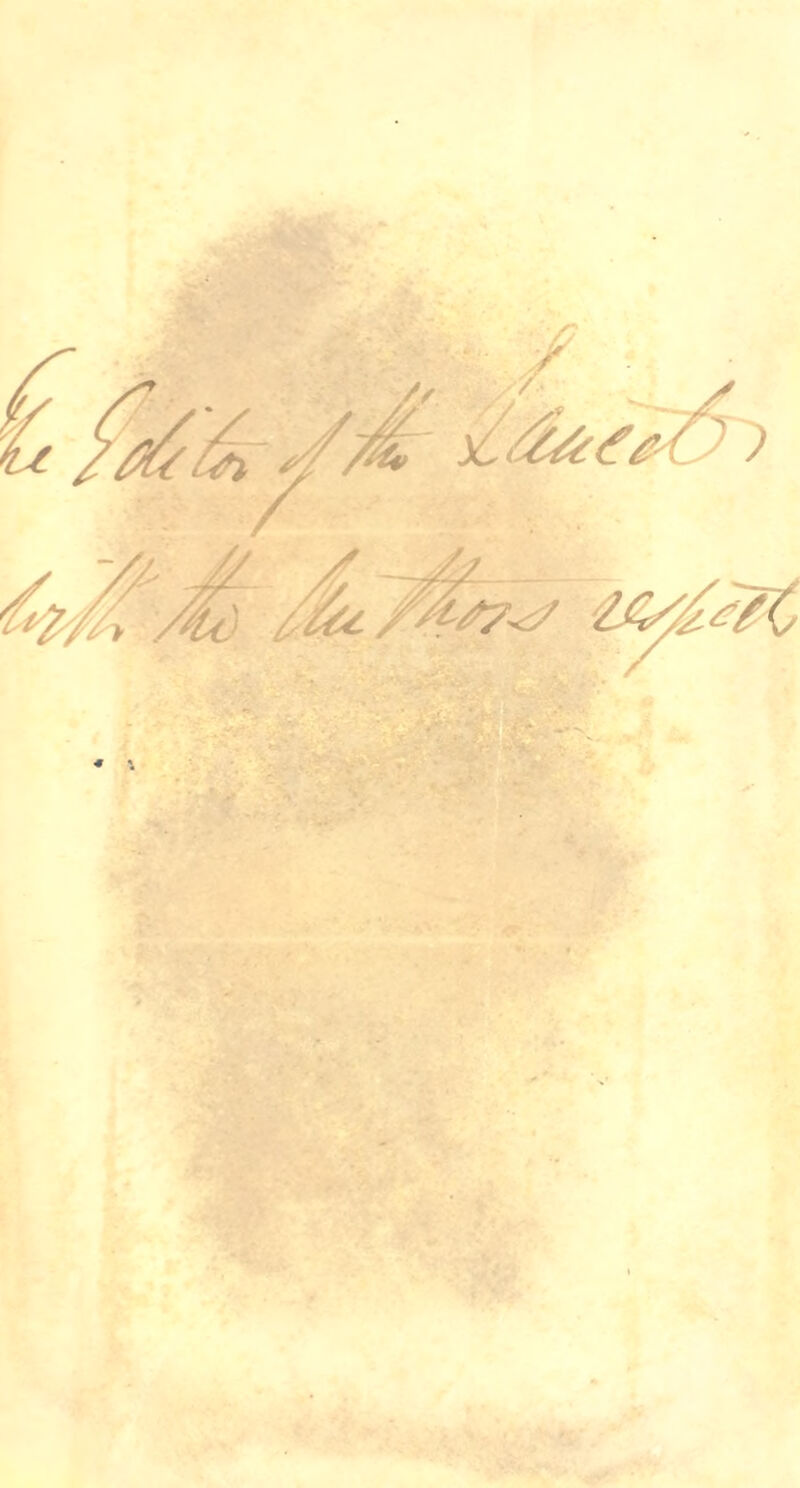 The Editor of the Lancet,
with the Authors respects